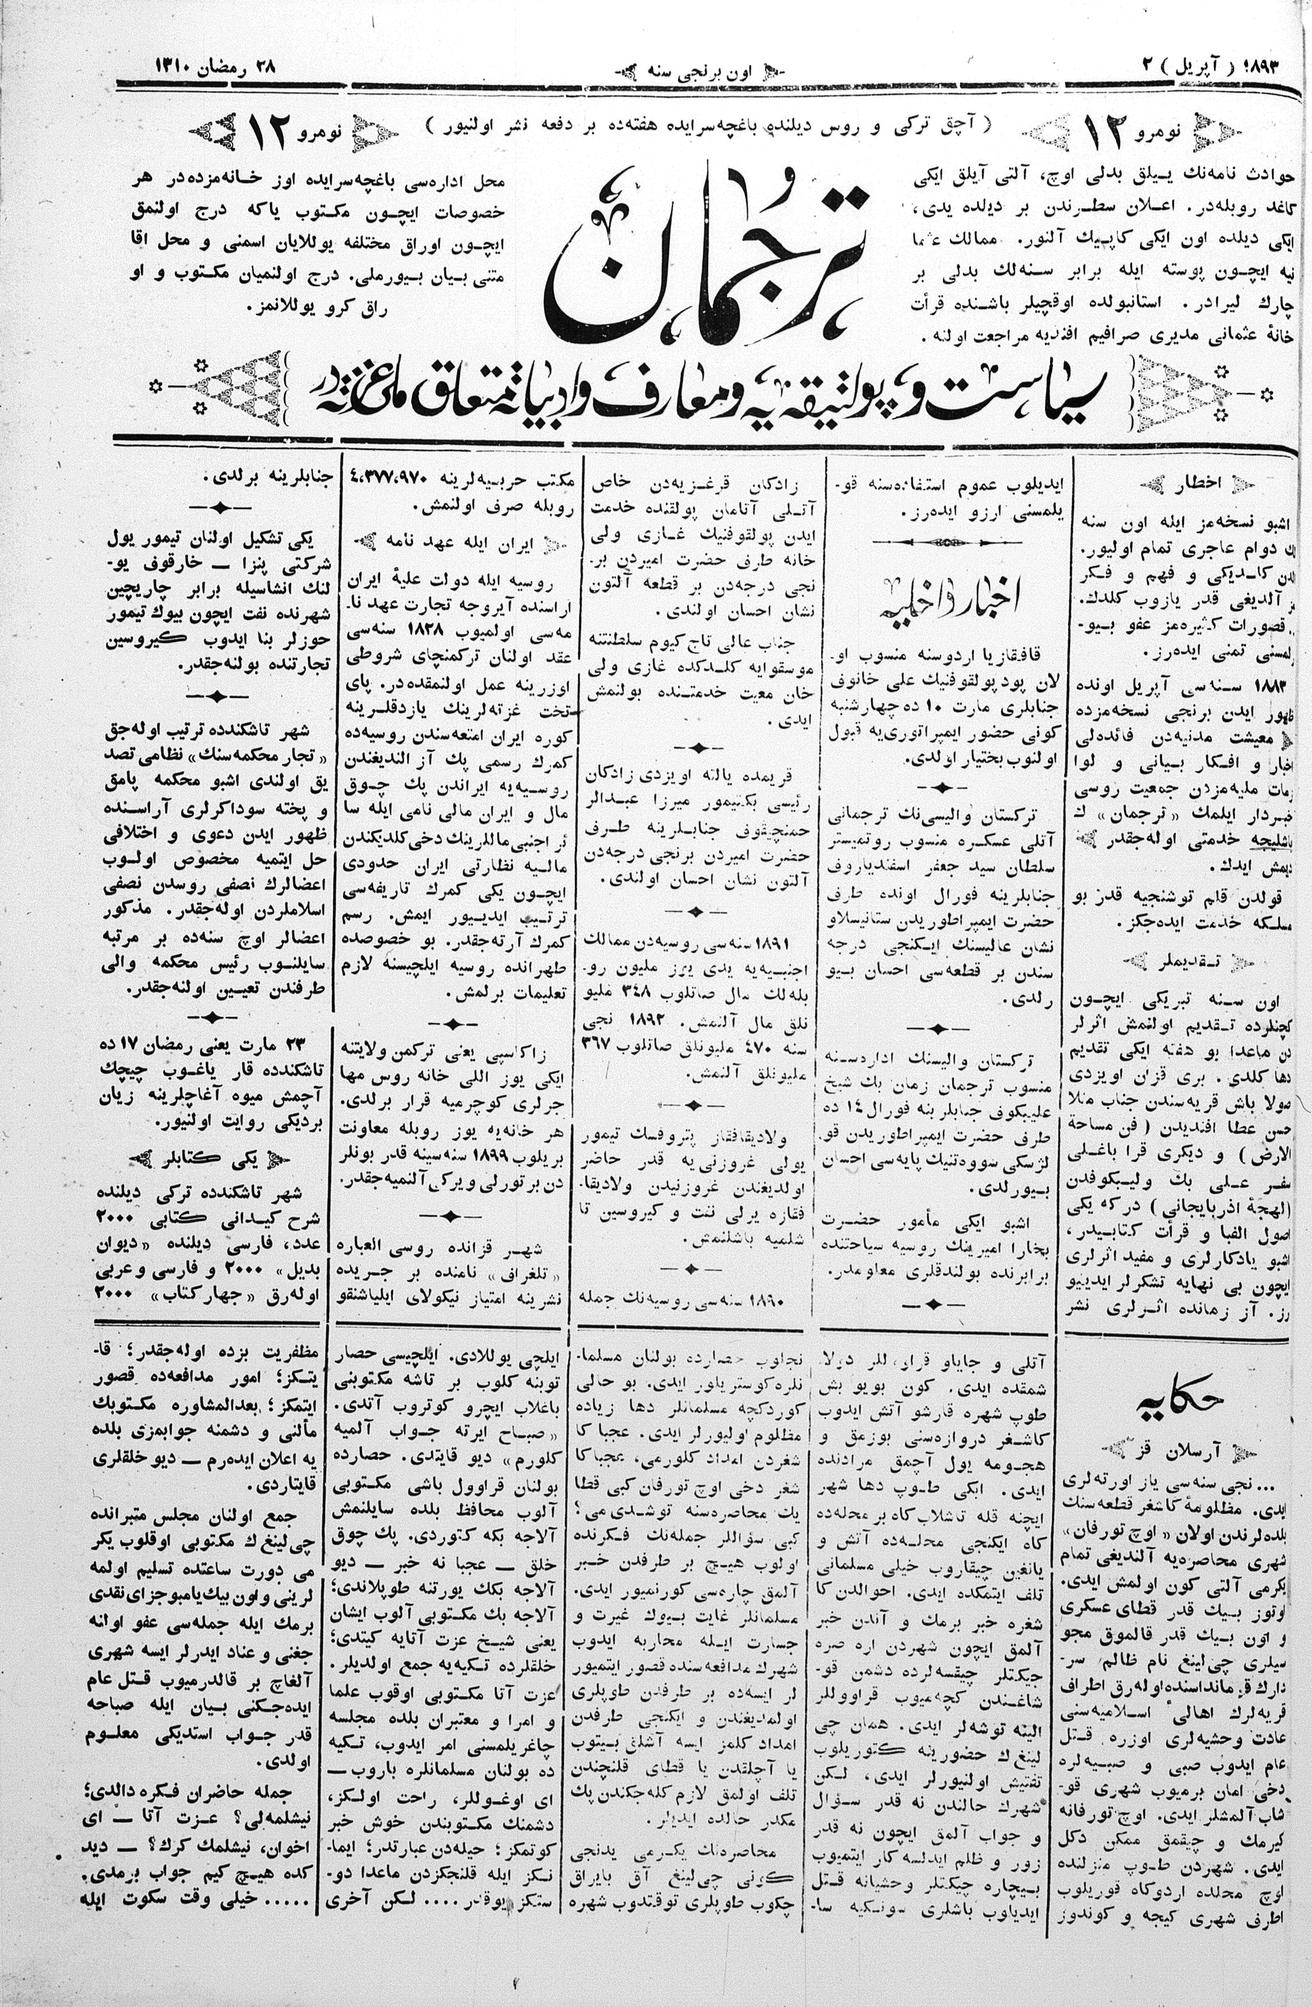 ۱۸۹۳ ( آپریل ) ۲
اون برنجی سنه
۲۸ رمضان ۱۳۱۰
نومرو ۱۲
( آچق ترکی و روس دیلنده باغچه‌سرایده هفته‌ده بر دفعه نشر اولنیور )
نومرو ۱۲
حوادث نامه‌نك ییللق بدلی اوچ، آلتی آیلق ایکی
کاغد روبله‌در. اعلان سطرندن بر دیلده یدی،
ایکی دیلده اون ایکی کاپیك آلنور. ممالك عثما
نیه ایچون پوسته ایله برابر سنه‌لك بدلی بر
چارك لیرادر. استانبولده اوقچیلر باشنده قرأت
خانهٔ عثمانی مدیری صرافیم افندیه مراجعت اولنه.
ترجمان
محل اداره‌سی باغچه‌سرایده اوز خانه‌مزده‌در هر
خصوصات ایچون مکتوب یاکه درج اولنمق
ایچون اوراق مختلفه یوللایان اسمنی و محل اقا
متنی بیان بیورملی. درج اولنمیان مکتوب و او
راق کرو یوللانمز.
سیاست و پولتیقه‌یه و معارف و ادبیاته متعلق ملی غزته‌در
اخطار
اشبو نسخه‌مز ایله اون سنه
لك دوام عاجری تمام اولیور.
لدن کلدیکی و فهم و فکر
مز آلدیغی قدر یازوب کلدك.
قصورات کثیره‌مز عفو بیو-
رلمسنی تمنی ایده‌رز.
۱۸۸۳ سنه‌سی آپریل اونده
ظهور ایدن برنجی نسخه‌مزده
معیشت مدنیه‌دن فائده‌لی
اخبار و افکار بیانی و لوا
زمات ملیه‌مزدن جمعیت روسی
خبردار ایلمك «ترجمان» ك
باشلیجه خدمتی اوله‌جقدر
دیمش ایدك.
قولدن قلم توشنجیه قدر بو
مسلکه خدمت ایده‌جکز.
تقدیملر
اون سنه تبریکی ایچون
کچنلرده تقدیم اولنمش اثرلر
دن ماعدا بو هفته ایکی تقدیم
دها کلدی. بری قزان اویزدی
مولا باش قریه‌سندن جناب منلا
حسن عطا افندیدن ( فن مساحة
الارض ) و دیکری قرا باغلی
سفر علی بك ولیبکوفدن
(لهجۀ اذربایجانی) درکه یکی
اصول الفبا و قرأت کتابیدر،
اشبو یادکارلری و مفید اثرلری
ایچون بی نهایه تشکرلر ایدییو
رز. آز زمانده اثرلری نشر
ایدیلوب عموم استفاده‌سنه قو-
یلمسنی ارزو ایده‌رز.
اخبار داخلیه
قافقازیا اردوسنه منسوب او-
لان پودپولقوفنیك علی خانوف
جنابلری مارت ۱۰ ده چهارشنبه
کونی حضور ایمپراتوری‌یه قبول
اولنوب بختیار اولدی.
ترکستان والیسی‌نك ترجمانی
آتلی عسکره منسوب روتمیستر
سلطان سید جعفر اسفندیاروف
جنابلرینه فورال اونده طرف
حضرت ایمپراطوریدن ستانیسلاو
نشان عالیسنك ایکنجی درجه
سندن بر قطعه‌سی احسان بیو
رلدی.
ترکستان والیسنك اداره‌سنه
منسوب ترجمان زمان بك شیخ
علیبکوف جنابلرینه فورال ۱٤ ده
طرف حضرت ایمپراطوریدن قو
لژسکی سووه‌تنیك پایه‌سی احسان
بیورلدی.
اشبو ایکی مأمور حضرت
بخارا امیرینك روسیه سیاحتنده
برابرنده بولندقلری معلومدر.
زادکان قرغزیه‌دن خاص
آتلی آتامان پولقنده خدمت
ایدن پولقوفنیك غازی ولی
خانه طرف حضرت امیردن بر-
نجی درجه‌دن بر قطعه آلتون
نشان احسان اولندی.
جناب عالی تاج کیوم سلطنتنه
موسقوایه کلدکده غازی ولی
خان معیت خدمتنده بولنمش
ایدی.
قریمده یالته اویزدی زادکان
رئیسی بکتیمور میرزا عبدالر
حمنچیقوف جنابلرینه طرف
حضرت امیردن برنجی درجه‌دن
آلتون نشان احسان اولندی.
۱۸۹۱ سنه‌سی روسیه‌دن ممالك
اجنبیه‌یه یدی یوز ملیون رو-
بله‌لك مال صاتلوب ۳٤۸ ملیو
نلق مال آلنمش. ۱۸۹۲ نجی
سنه ٤۷۰ ملیونلق صاتلوب ۳٦۷
ملیونلق آلنمش.
ولادیقافقاز پتروفسك تیمور
یولی غروزنی‌یه قدر حاضر
اولدیغندن غروزنیدن ولادیقا-
فقازه یرلی نفت و کیروسین تا
شلمیه باشلنمش.
۱۸۹۰ سنه‌سی روسیه‌نك جمله
مکتب حربیه‌لرینه ٤،۳۷۷،۹۷۰
روبله صرف اولنمش.
ایران ایله عهد نامه
روسیه ایله دولت علیۀ ایران
اراسنده آیروجه تجارت عهد نا-
مه‌سی اولمیوب ۱۸۲۸ سنه‌سی
عقد اولنان ترکمنچای شروطی
اوزرینه عمل اولنمقده‌در. پای
تخت غزته‌لرینك یازدقلرینه
کوره ایران امتعه‌سندن روسیه‌ده
کمرك رسمی پك آز الندیغندن
روسیه‌یه ایراندن پك چوق
مال و ایران مالی نامی ایله سا
ئر اجنبی ماللرینك دخی کلدیکندن
مالیه نظارتی ایران حدودی
ایچون یکی کمرك تاریفه‌سی
ترتیب ایدییور ایمش. رسم
کمرك آرته‌جقدر. بو خصوصده
طهرانده روسیه ایلچیسنه لازم
تعلیمات برلمش.
زاکاسپی یعنی ترکمن ولایتنه
ایکی یوز اللی خانه روس مها
جرلری کوچرمیه قرار برلدی.
هر خانه‌یه یوز روبله معاونت
بریلوب ۱۸۹۹ سنه‌سینه قدر بونلر
دن برتورلی ویرکی آلنمیه‌جقدر.
شهر قزانده روسی العباره
«تلغراف» نامنده بر جریده
نشرینه امتیاز نیکولای ایلیاشنقو
جنابلرینه برلدی.
یکی تشکیل اولنان تیمور یول
شرکتی پنزا — خارقوف یو-
لنك انشاسیله برابر چاریچین
شهرنده نفت ایچون بیوك تیمور
حوزلر بنا ایدوب کیروسین
تجارتنده بولنه‌جقدر.
شهر تاشکندده ترتیب اوله‌جق
«تجار محکمه‌سنك» نظامی تصد
یق اولندی اشبو محکمه پامق
و پخته سوداکرلری آراسنده
ظهور ایدن دعوی و اختلافی
حل ایتمیه مخصوص اولوب
اعضالرك نصفی روسدن نصفی
اسلاملردن اوله‌جقدر. مذکور
اعضالر اوچ سنه‌ده بر مرتبه
سایلنوب رئیس محکمه والی
طرفندن تعیین اولنه‌جقدر.
۲۳ مارت یعنی رمضان ۱۷ ده
تاشکندده قار یاغوب چیچك
آچمش میوه آغاچلرینه زیان
بردیکی روایت اولنیور.
یکی کتابلر
شهر تاشکندده ترکی دیلنده
شرح کیدانی کتابی ۲۰۰۰
عدد، فارسی دیلنده «دیوان
بدیل» ۲۰۰۰ و فارسی و عربی
اوله‌رق «چهار کتاب» ۲۰۰۰
حکایه
آرسلان قز
... نجی سنه‌سی یاز اورته‌لری
ایدی. مظلومۀ کاشغر قطعه‌سنك
بلده‌لرندن اولان «اوچ تورفان»
شهری محاصره‌یه آلندیغی تمام
یکرمی آلتی کون اولمش ایدی.
اوتوز بیك قدر قطای عسکری
و اون بیك قدر قالموق مجو
سیلری چی‌لینغ نام ظالم سر-
دارك قمانداسنده اوله‌رق اطراف
قریه‌لرك اهالیء اسلامیه‌سنی
عادت وحشیه‌لری اوزره قتل
عام ایدوب صبی و صبیه‌لره
دخی امان برمیوب شهری قو-
شاب آلمشلر ایدی. اوچ تورفانه
کیرمك و چیقمق ممکن دکل
ایدی. شهردن طوپ منزلنده
اوچ محلده اردوکاه قوریلوب
اطرف شهری کیجه و کوندوز
آتلی و جایاو قراوللر دولا-
شمقده ایدی. کون بویو بش
طوپ شهره قارشو آتش ایدوب
کاشغر دروازه‌سنی بوزمق و
هجومه یول آچمق مرادنده
ایدی. ایکی طوپ دها شهر
ایچنه قله تاشلاب کاه بر محله‌ده
کاه ایکنجی محله‌ده آتش و
یانغین چیقاروب خیلی مسلمانی
تلف ایتمکده ایدی. احوالدن کا
شغره خبر برمك و آندن خبر
آلمق ایچون شهردن اره صره
جیکتلر چیقسه‌لرده دشمن قو-
شاغندن کچه‌میوب قراوللر
الینه توشه‌لر ایدی. همان چی
لینغ ك حضورینه کتوریلوب
تفتیش اولنیورلر ایدی، لکن
شهرك حالندن نه قدر سؤال
و جواب آلمق ایچون نه قدر
زور و ظلم ایدلسه کار ایتمیوب
بیچاره جیکتلر وحشیانه قتل
ایدیلوب باشلری سونکیه سا-
نجلوب حصارده بولنان مسلما-
نلره کوستریلور ایدی. بو حالی
کوردکچه مسلمانلر دها زیاده
مظلوم اولیورلر ایدی. عجبا کا
شغردن امداد کلورمی، عجبا کا
شغر دخی اوچ تورفان کبی قطا
یك محاصره‌سنه توشدی می؟
کبی سؤاللر جمله‌نك فکرنده
اولوب هیچ بر طرفدن خبر
آلمق چاره‌سی کورنمیور ایدی.
مسلمانلر غایت بیوك غیرت و
جسارت ایله محاربه ایدوب
شهرك مدافعه‌سنده قصور ایتمیور
لر ایسه‌ده بر طرفدن طوپلری
اولمدیغندن و ایکنجی طرفدن
امداد کلمز ایسه آشلغ بیتوب
یا آچلقدن یا قطای قلنچندن
تلف اولمق لازم کله‌جکندن پك
مکدر حالده ایدیلر.
محاصره‌نك یکرمی یدنجی
کونی چی‌لینغ آق بایراق
چکوب طوپلری توقتدوب شهره
ایلچی یوللادی. ایلچیسی حصار
توبنه کلوب بر تاشه مکتوبنی
باغلاب ایچرو کوتروب آتدی.
«صباح ایرته جواب آلمیه
کلورم» دیو قایتدی. حصارده
بولنان قراوول باشی مکتوبی
آلوب محافظ بلده سایلنمش
آلاجه بکه کتوردی. پك چوق
خلق — عجبا نه خبر — دیو
آلاجه بکك یورتنه طوپلاندی؛
آلاجه بك مکتوبی آلوب ایشان
یعنی شیخ عزت آتایه کیتدی؛
خلقلرده تکیه‌یه جمع اولدیلر.
عزت آتا مکتوبی اوقوب علما
و امرا و معتبران بلده مجلسه
چاغریلمسنی امر ایدوب، تکیه
ده بولنان مسلمانلره باروب —
ای اوغوللر، راحت اولکز،
دشمنك مکتوبندن خوش خبر
کوتمکز؛ حیله‌دن عبارتدر؛ ایما-
نکز ایله قلنجکزدن ماعدا دو-
ستکز یوقدر .... لکن آخری
مظفریت بزده اوله‌جقدر؛ قا-
یتکز؛ امور مدافعه‌ده قصور
ایتمکز؛ بعدالمشاوره مکتوبك
مألنی و دشمنه جوابمزی بلده
یه اعلان ایده‌رم — دیو خلقلری
قایتاردی.
جمع اولنان مجلس متبرانده
چی‌لینغ ك مکتوبی اوقلوب یکر
می دورت ساعتده تسلیم اولمه
لرینی و اون بیك یامبو جزای نقدی
برمك ایله جمله‌سی عفو اولنه
جغنی و عناد ایدرلر ایسه شهری
آلغاچ بر قالدرمیوب قتل عام
ایده‌جکنی بیان ایله صباحه
قدر جواب استدیکی معلوم
اولدی.
جمله حاضران فکره دالدی؛
نیشلمه‌لی؟ عزت آتا — ای
اخوان، نیشلمك کرك؟ — دید
کده هیچ کیم جواب برمدی.
..... خیلی وقت سکوت ایله